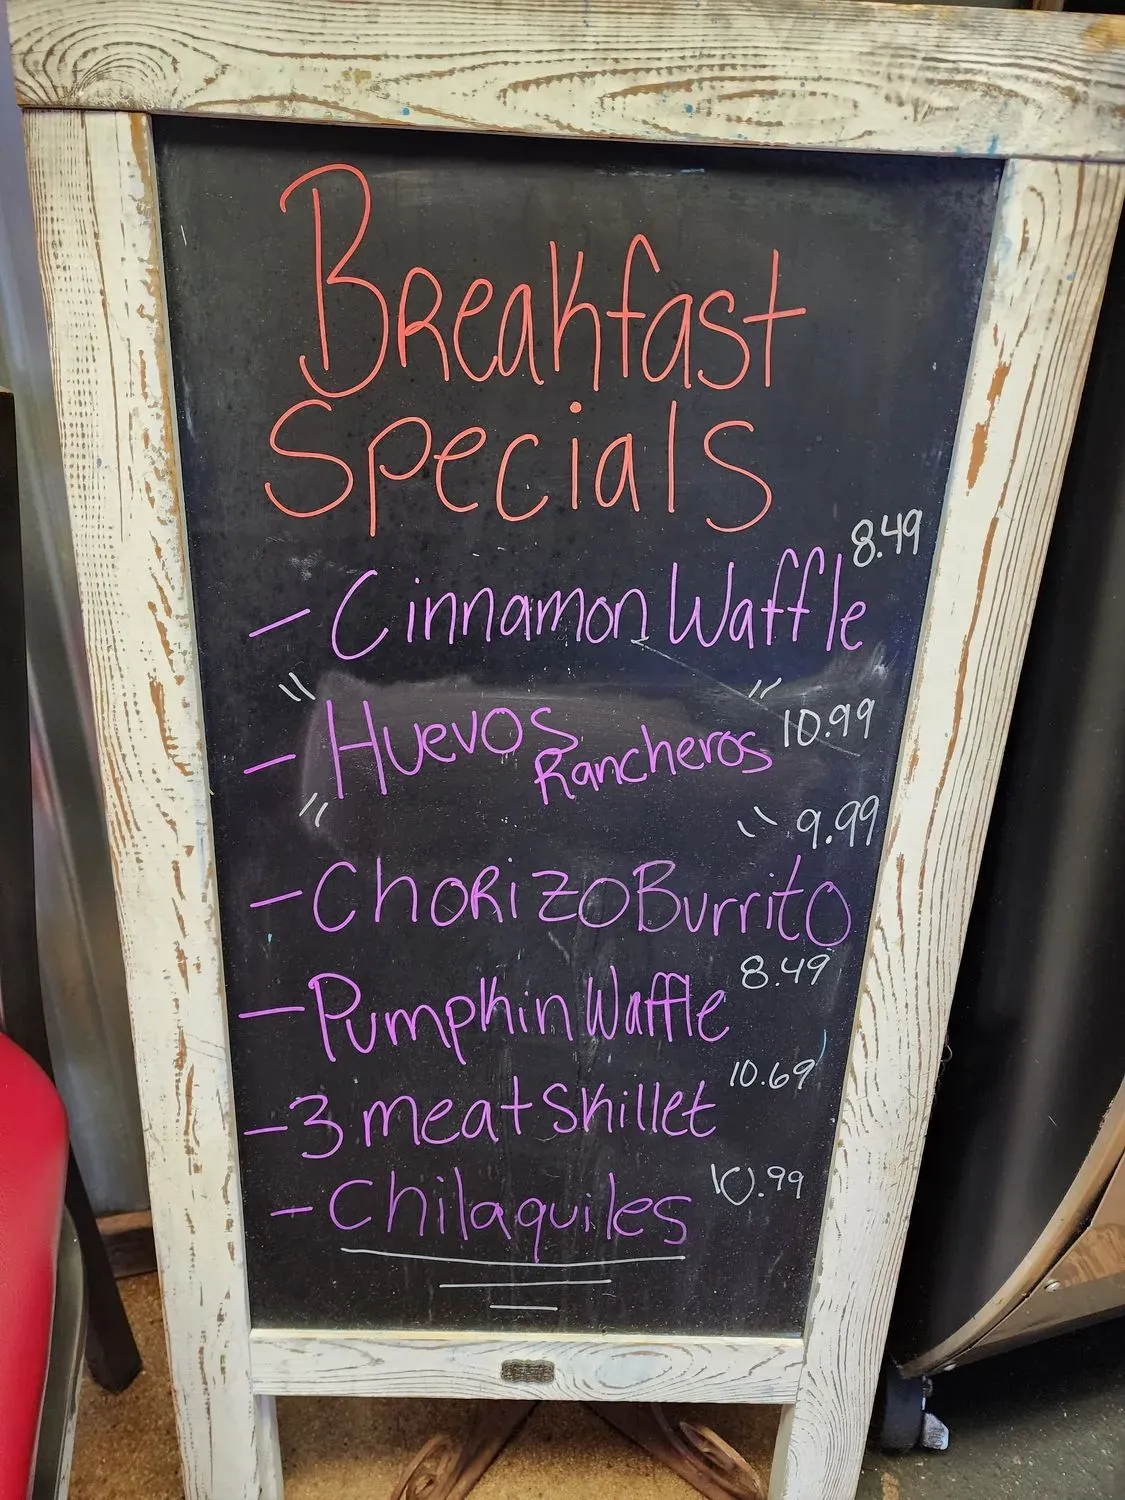 Breakfast
Specials
8.49
- Cinnamon Waffle
- Huevos Rancheros 10.99
9.99
- Chorizo Burrito
8.49
- Pumpkin Waffle
10.69
- 3 meat Skillet
10.99
- Chilaquiles